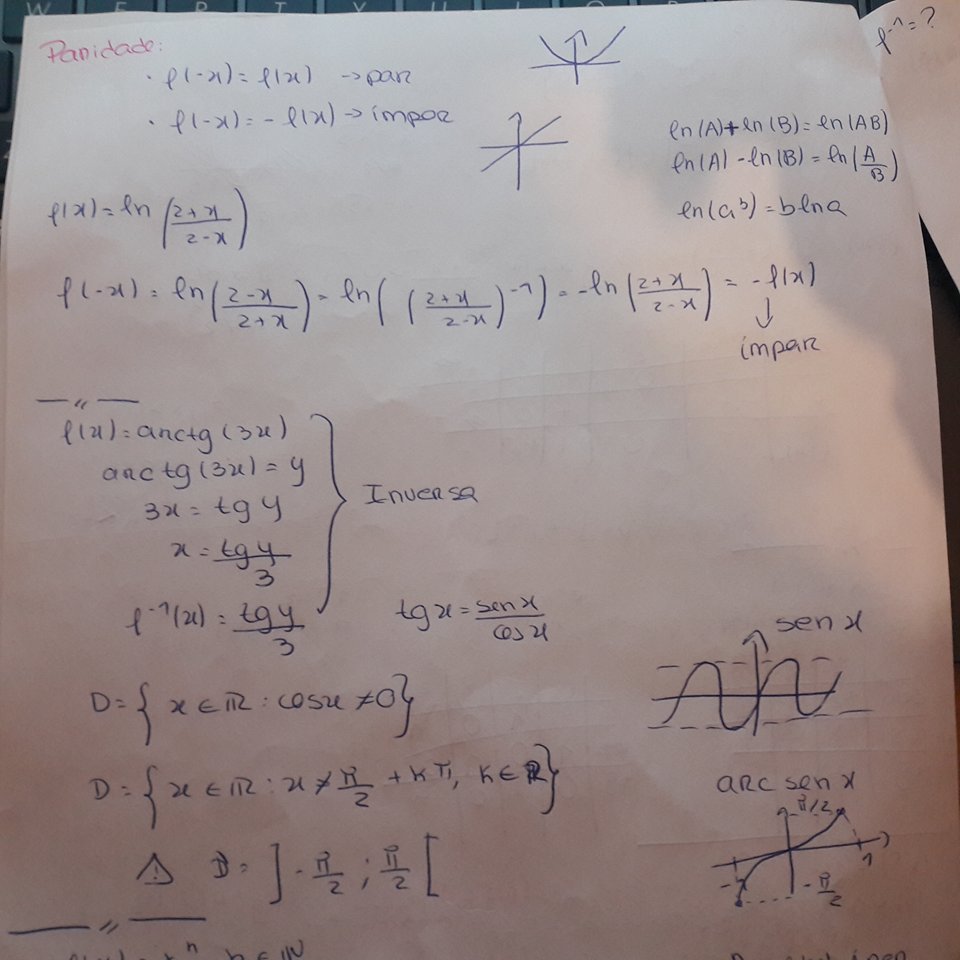 Paridade:
· f(-x) = f(x) → par
· f(-x) = - f(x) → ímpar
f⁻¹ = ?
ln(A) + ln(B) = ln(AB)
ln(A) - ln(B) = ln(A/B)
ln(a^b) = b ln a
f(x) = ln((2+x)/(2-x))
f(-x) = ln((2-x)/(2+x)) = ln(((2+x)/(2-x))⁻¹) = -ln((2+x)/(2-x)) = -f(x)
↓
ímpar
f(x) = arctg(3x)
arctg(3x) = y
3x = tg y
x = tg y/3
f⁻¹(x) = tg y/3
Inversa
tg x = sen x/cos x
sen x
D = { x ∈ ℝ : cos x ≠ 0 }
D = { x ∈ ℝ : x ≠ π/2 + kπ, k ∈ ℝ }
⚠ D = ] - π/2 ; π/2 [
arc sen x
π/2
1
- π/2